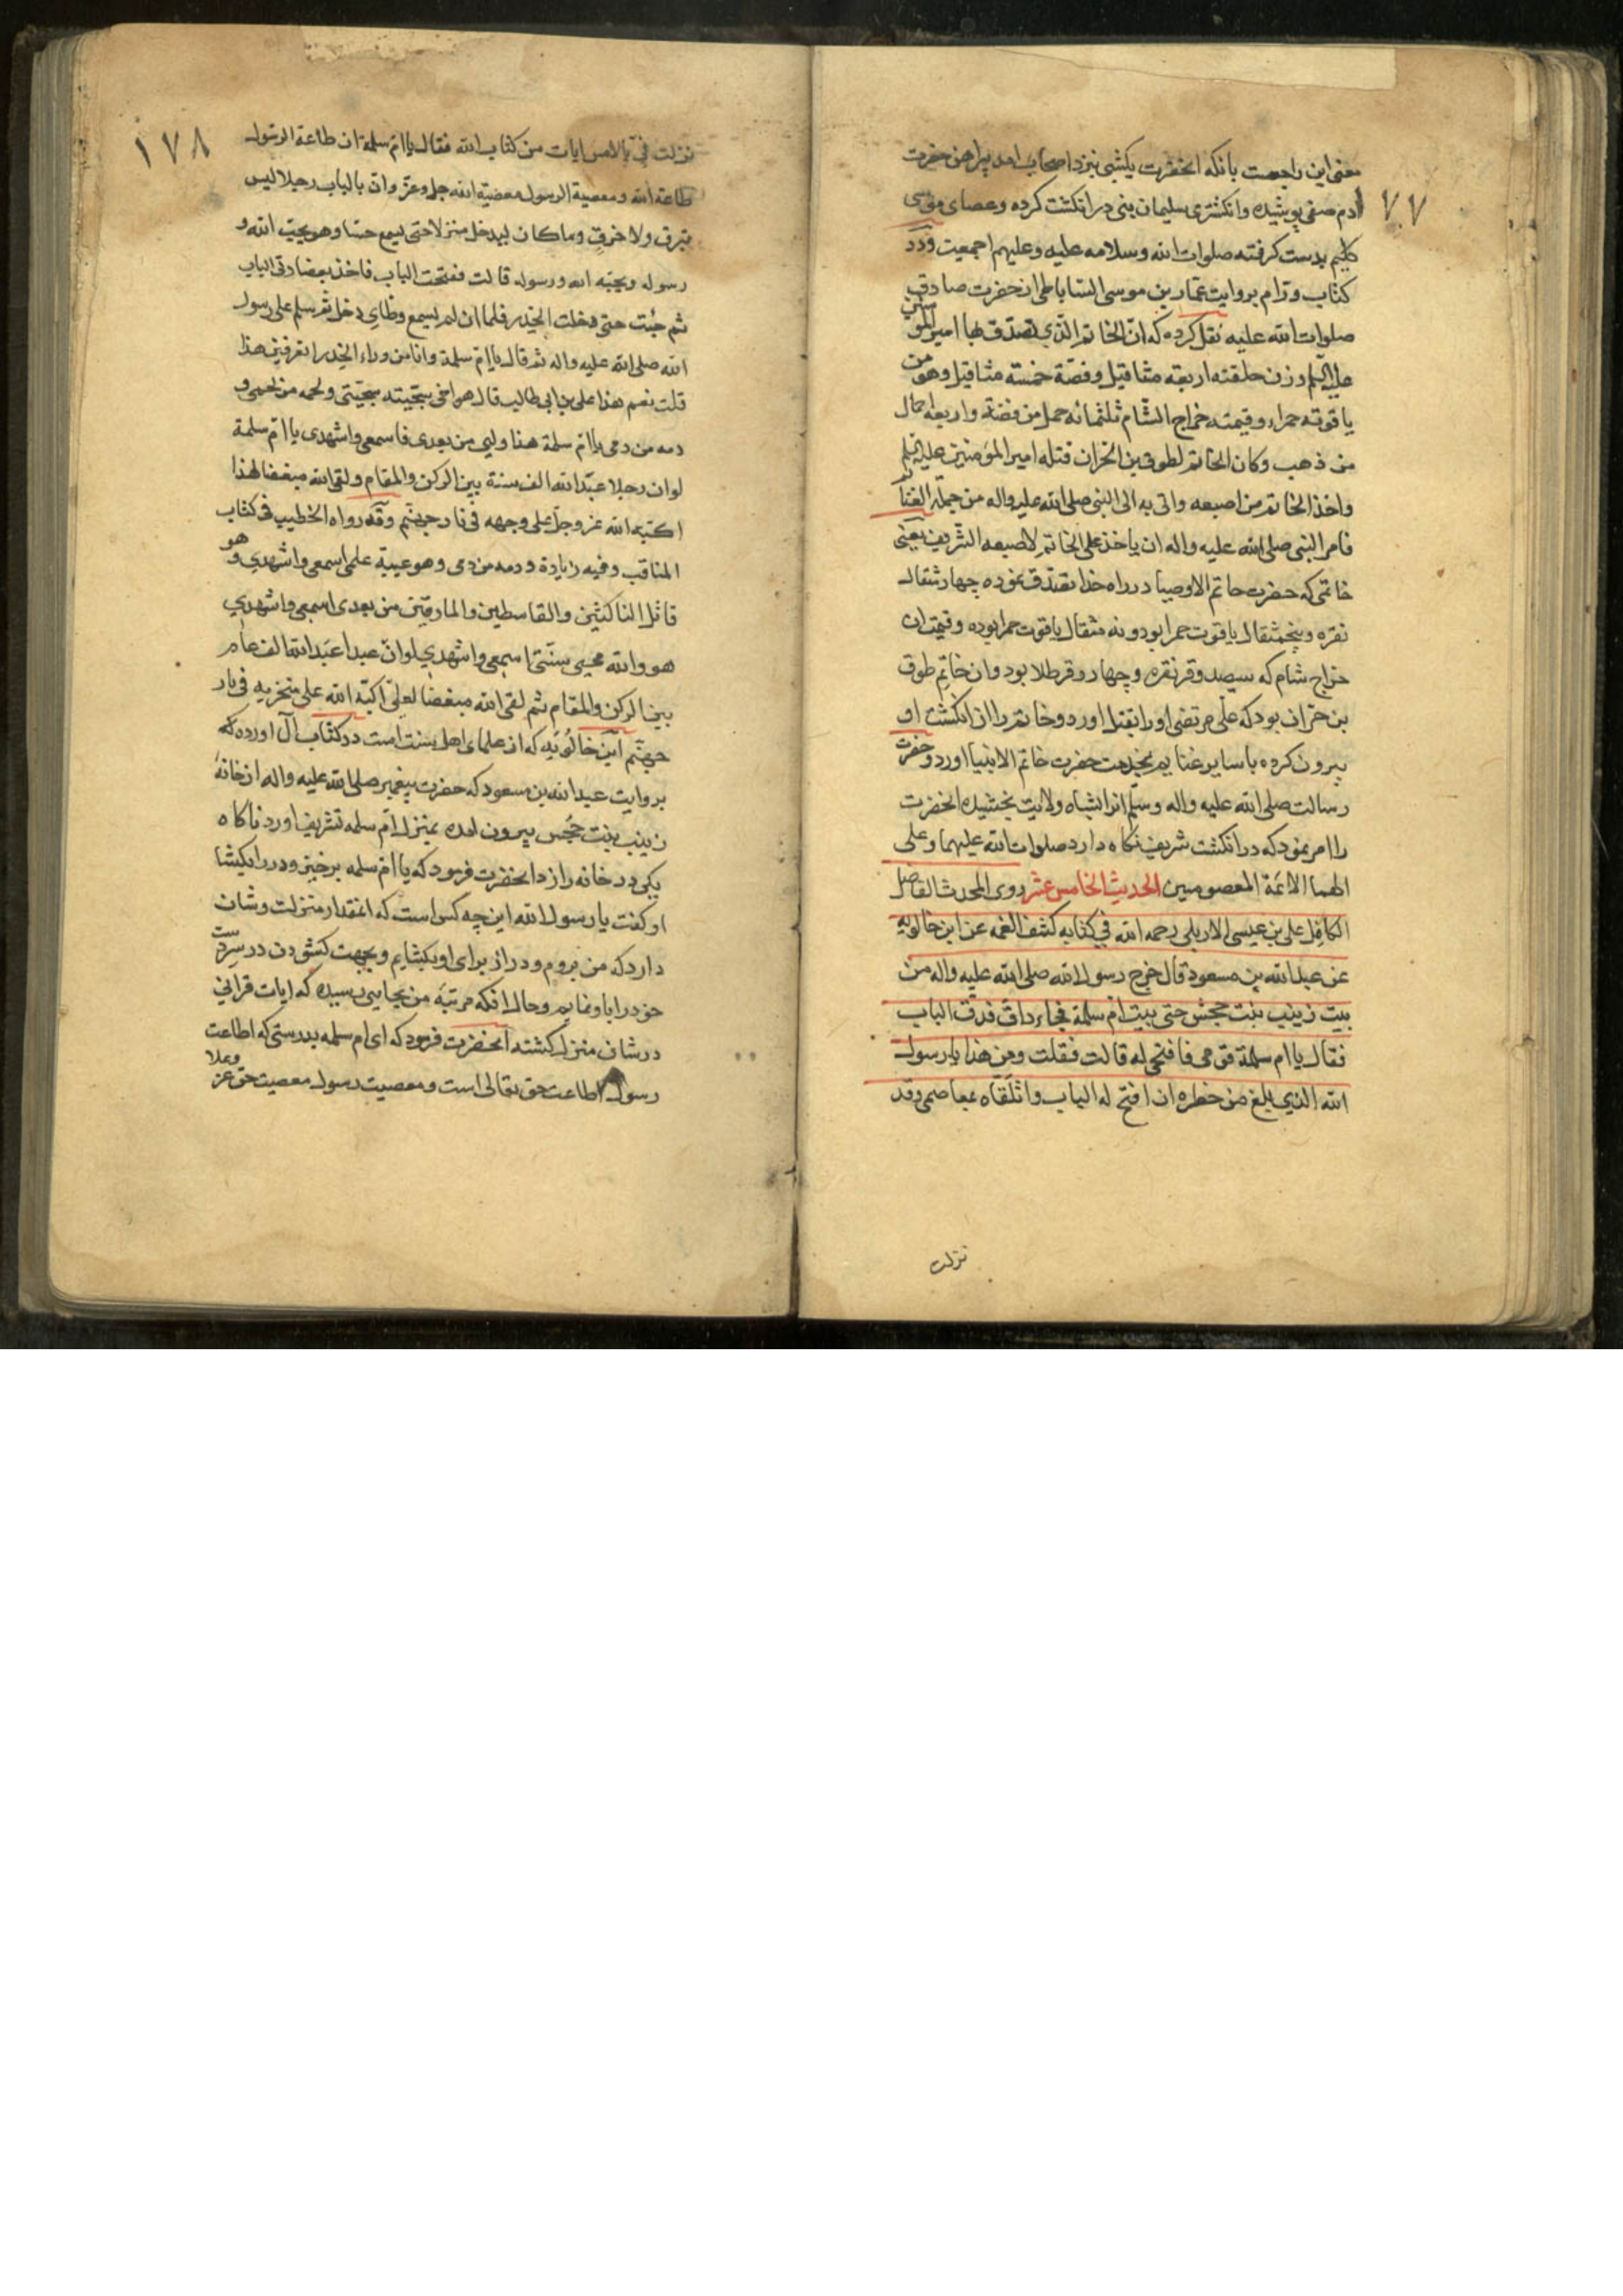 معنی این راجعست بانکه انحضرت یکشبی نبزد اصحاب امد پیراهن حضرت
ادم صفی پوشیده وانکشتری سلیمان بنی در انکشت کرده وعصای موسی
کلیم بدست کرفته صلوات الله وسلامه علیه وعلیهم اجمعین ودر
کتاب ورّام بروایت عمّار بن موسی الساباطی از حضرت صادق
صلوات الله علیه نقل کرده که انّ الخاتم الّذی تصدّق بها امیر المومنین
علیه السلم وزن حلقته اربعة مثاقیل وفصّه خمسة مثاقیل وهو من
یاقوته حمراء وقیمته خراج الشام ثلثمائه حمل من فضّة واربعة احمال
من ذهب وکان الخاتم لطوق بن الحران قتله امیر المؤمنین علیه السلم
واخذ الخاتم من اصبعه واتی به الی النبی صلی الله علیه واله من جملة الغنائم
فامر النبی صلی الله علیه واله ان یاخذ علی الخاتم لاصبعه الشریف یعنی
خاتمی که حضرت خاتم الاوصیا در راه خدا تصدّق نموده چهار مثقال
نقره وپنجمثقال یاقوت حمرا بود ونه مثقال یاقوت حمرا بوده وقیمت ان
خراج شام که سیصد وقر نقره وچهار وقر طلا بود وان خاتم طوق
بن حرّان بود که علی مرتضی او را بقتل اورد وخاتم را از انکشت او
بیرون کرده با سایر غنایم بخدمت حضرت خاتم الانبیا اورد وحضرت
رسالت صلی الله علیه واله وسلم انرا بشاه ولایت بخشیده انحضرت
را امر نمود که در انکشت شریف نکاه دارد صلوات الله علیهما وعلی
الهما الائمة المعصومین الحدیث الخامس عشر روی المحدث الفاضل
الکامل علی بن عیسی الاربلی رحمه الله فی کتابه کشف الغمه عن ابن خالویه
عن عبد الله بن مسعود قال خرج رسول الله صلی الله علیه واله من
بیت زینب بنت جحش حتی بیت ام سلمة فجاء داق فدق الباب
فقال یا ام سلمة قومی فافتحی له قالت فقلت ومن هذا یا رسول
الله الذی بلغ من خطره ان افتح له الباب واتلقاه بمعاصمی وقد
نزلت
٧٧
١٧٨
نزلت فیّ بالامس ایات من کتاب الله فقال یا امّ سلمة ان طاعة الرسول
طاعة الله ومعصیة الرسول معصیة الله جل وعزّ وانّ بالباب رجلا لیس
بنزق ولا خرق وماکان لیدخل منزلا حتی یسمع حسّا وهو یحبّ الله و
رسوله ویحبّه الله ورسوله قالت ففتحت الباب فاخذ بعضادتی الباب
ثم جئت حتی دخلت الخدر فلما ان لم یسمع وطای دخل ثم سلم علی رسول
الله صلی الله علیه واله ثم قال یا امّ سلمة وانا من وراء الخدر اتعرفین هذا
قلت نعم هذا علی بن ابی طالب قال هو اخی سجیّته سجیّتی ولحمه من لحمی و
دمه من دمی یا امّ سلمة هذا ولیی من بعدی فاسمعی واشهدی یا امّ سلمة
لو ان رجلا عبد الله الف سنة بین الرکن والمقام ولقی الله مبغضا لهذا
اکبّه الله عز وجل علی وجهه فی نار جهنّم وقد رواه الخطیب فی کتاب
المناقب وفیه زیادة ودمه من دمی وهو عیبة علمی اسمعی واشهدی وهو
قاتل الناکثین والقاسطین والمارقین من بعدی اسمعی واشهدی
هو والله محیی سنّتی اسمعی واشهدی لو انّ عبدا عبد الله الف عام
بین الرکن والمقام ثم لقی الله مبغضا لعلی اکبّه الله علی منخریه فی نار
جهنّم ابن خالویه که از علمای اهل سنت است در کتاب آل اورده که
بروایت عبد الله بن مسعود که حضرت پیغمبر صلی الله علیه واله از خانهٔ
زینب بنت جحش بیرون امده بمنزل امّ سلمه تشریف اورد ناکاه
یکی در خانه را زد انحضرت فرمود که یا امّ سلمه برخیز ودر را بکشا
او کفت یا رسول الله این چه کس است که انمقدار منزلت وشان
دارد که من بروم ودر از برای او بکشایم وبجهت کشودن در سر دست
خود را باو نمایم وحال انکه مرتبهٔ من بجایی رسیده که ایات قرانی
در شان منزل کشته انحضرت فرمود که ای ام سلمه بدرستی که اطاعت
رسول اطاعت حق تعالی است ومعصیت رسول معصیت حق عز وعلا